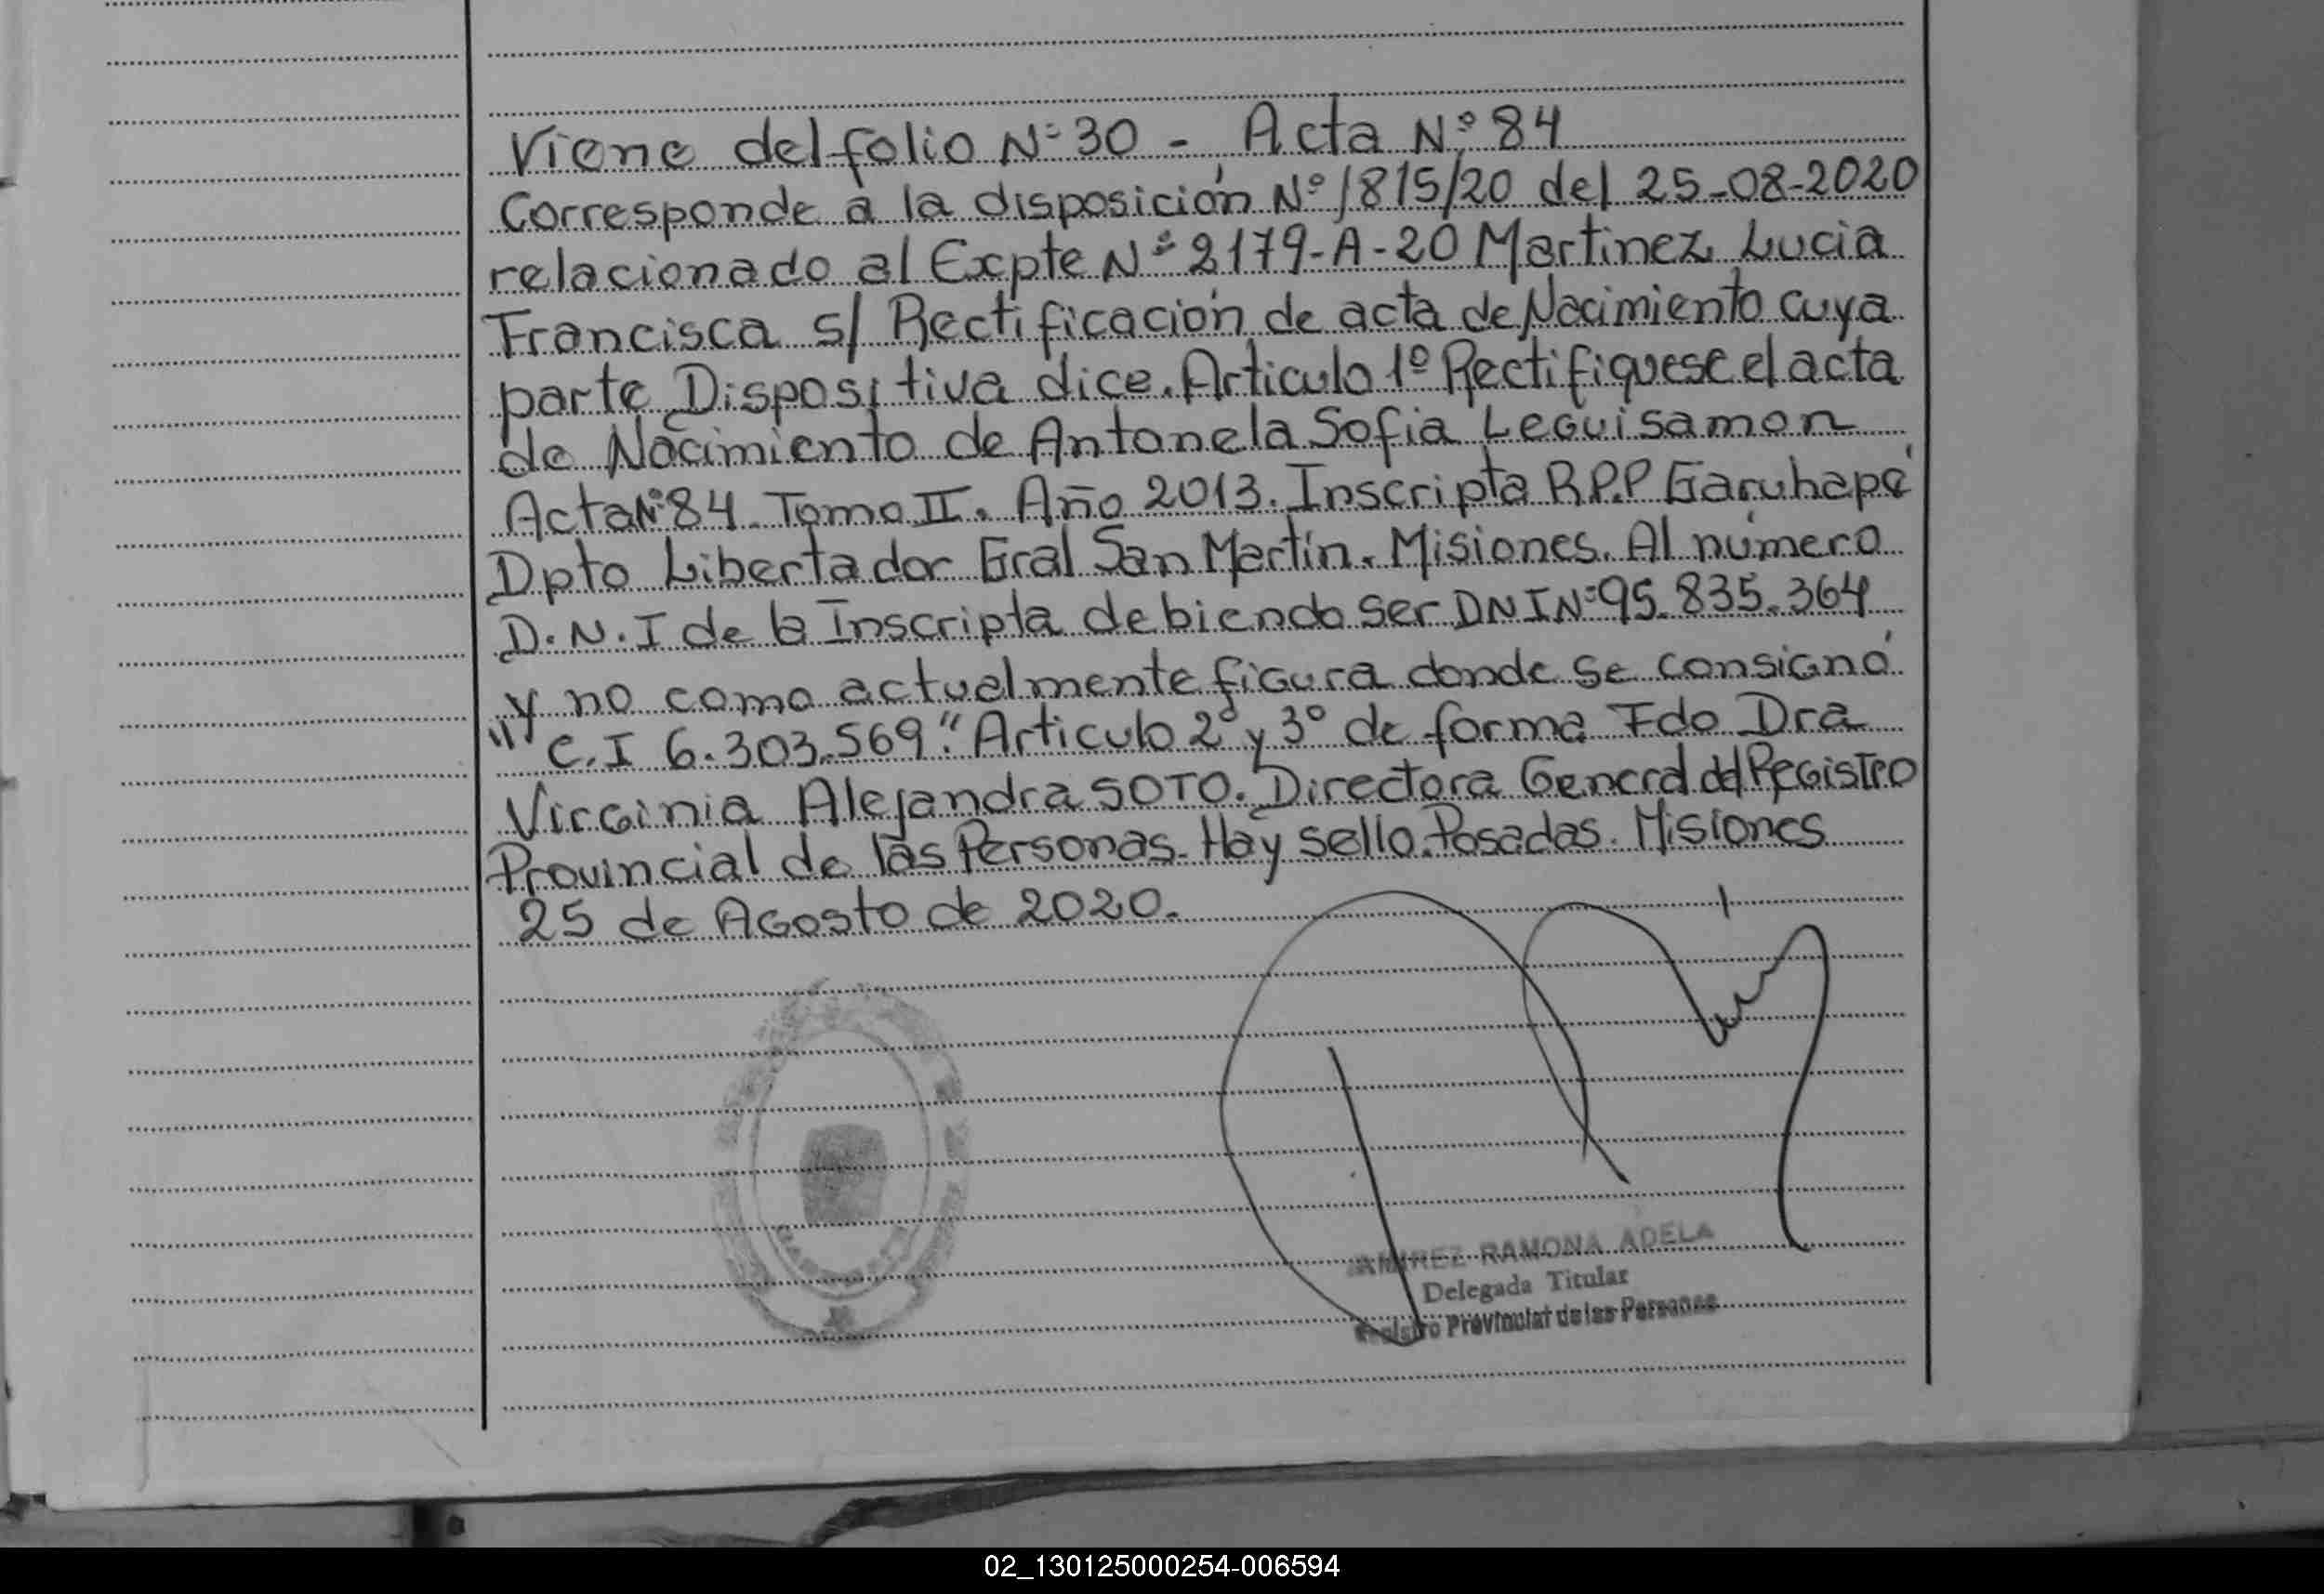 Viene del folio Nº 30 - Acta Nº 84
Corresponde a la disposición Nº 1815/20 del 25-08-2020
relacionado al Expte Nº 2179-A-20 Martinez Lucia
Francisca s/ Rectificación de acta de Nacimiento cuya
parte Dispositiva dice. Articulo 1º Rectifiquese el acta
de Nacimiento de Antonela Sofia Leguisamon
Acta Nº 84. Tomo II. Año 2013. Inscripta R.P.P Garuhapé
Dpto Libertador Gral San Martín. Misiones. Al número
D.N.I de la Inscripta debiendo ser DNI Nº 95.835.364
y no como actualmente figura donde se consignó
"C.I 6.303.569". Articulo 2º y 3º de forma Fdo Dra
Virginia Alejandra SOTO. Directora General del Registro
Provincial de las Personas. Hay sello. Posadas. Misiones
25 de Agosto de 2020.
AMIREZ RAMONA ADELA
Delegada Titular
Registro Provincial de las Personas
02_130125000254-006594